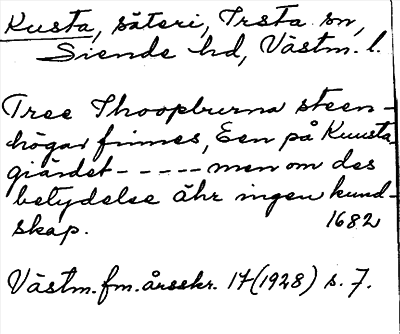 Kusta, säteri, Irsta sn,
Siende hd, Västm. l.
Tree Thooplurna steen-
högar finnes, Een på Kuusta
giärdet - - - - - men om des
betydelse ähr ingen kund-
skap. 1682
Västm. fm. årsskr. 17 (1928) s. 7.